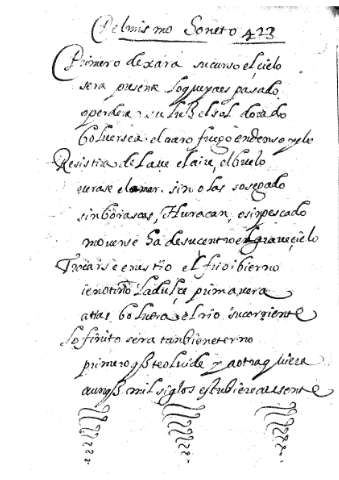 Del mismo Soneto 423
Primero dexara su curso el çielo
sera presente lo que ya es pasado
y perdera su luz el sol dorado
boluerse a el raro fuego en denso yelo
Resistira del aue el aire el buelo
verase el mar sin olas sosegado
sin borascas, Huracan, o sin pescado
mouerse ha de su centro el graue çielo
Trocarse en estio el frio ibierno
i en otoño la dulçe primauera
atras boluera el rio su corriente
lo finito sera tanbien eterno
primero q̃ te oluide y a otra quiera
aunq̃ mil siglos estubiere ausente